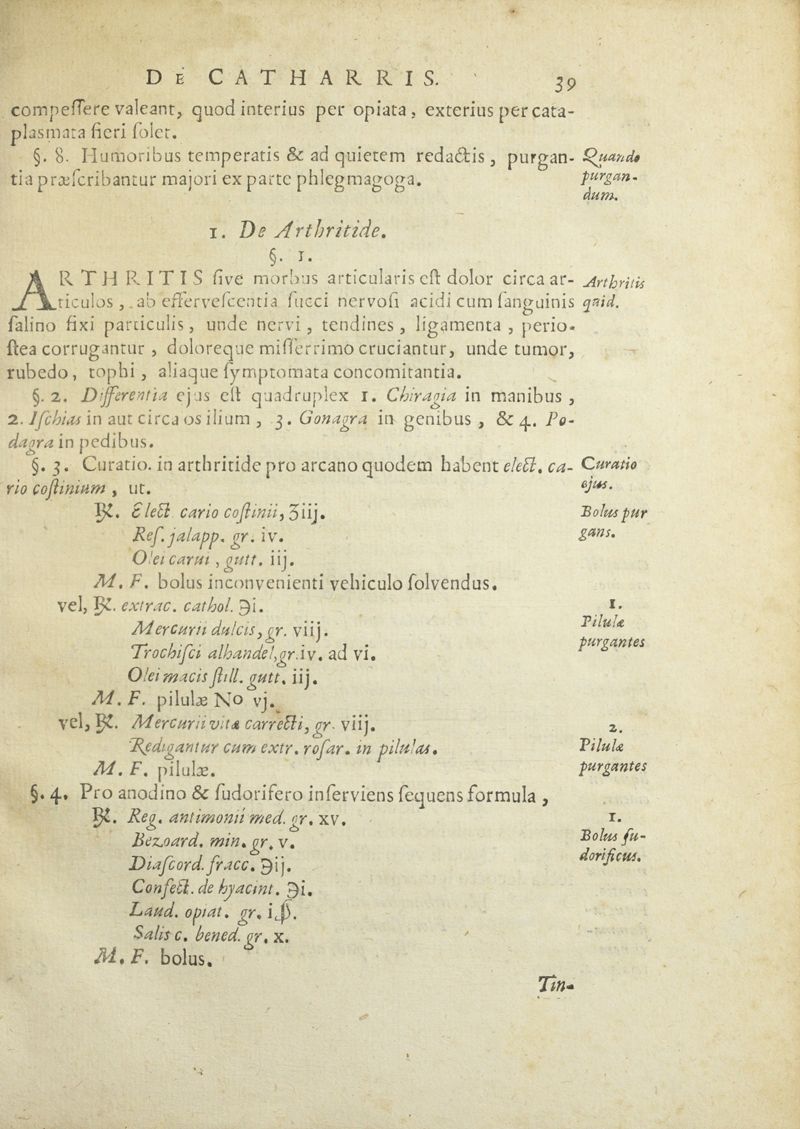 DE CATHARRIS. 39
compeſſere valeant, quod interius per opiata, exterius per cata-
plasmata fieri ſolet.
§. 8. Humoribus temperatis & ad quietem redactis, purgan-
tia præſcribantur majori ex parte phlegmagoga.
Quando
purgan-
dum.
1. De Arthritide.
§. 1.
ARTHRITIS ſive morbus articularis eſt dolor circa ar-
ticulos, ab efferveſcentia ſucci nervoſi acidi cum ſanguinis
ſalino fixi particulis, unde nervi, tendines, ligamenta, perio-
ſtea corrugantur, doloreque miſſerrimo cruciantur, unde tumor,
rubedo, tophi, aliaque ſymptomata concomitantia.
Arthritis
quid.
§. 2. Differentia ejus eſt quadruplex 1. Chiragia in manibus,
2. Iſchias in aut circa os ilium, 3. Gonagra in genibus, & 4. Po-
dagra in pedibus.
§. 3. Curatio. in arthritide pro arcano quodem habent elect. ca-
rio coſtinium, ut.
Curatio
ejus.
℞. Elect cario coſtinii, ʒiij.
Reſ. jalapp. gr. iv.
Olei carui, gutt. iij.
M. F. bolus inconvenienti vehiculo ſolvendus.
Bolus pur
gans.
vel, ℞. extrac. cathol. ℈i.
Mercurii dulcis, gr. viij.
Trochiſci alhandel, gr. iv. ad vi.
Olei macis ſtill. gutt. iij.
M. F. pilulæ No vj.
1.
Pilulæ
purgantes
vel, ℞. Mercurii vitæ carrecti, gr. viij.
Redigantur cum extr. roſar. in pilulas.
M. F. pilulæ.
2.
Pilulæ
purgantes
§. 4. Pro anodino & ſudorifero inſerviens ſequens formula,
℞. Reg. antimonii med. gr. xv.
Bezoard. min. gr. v.
Diaſcord. fracc. ℈ij.
Confect. de hyacint. ℈i.
Laud. opiat. gr. iß.
Salis c. bened. gr. x.
M. F. bolus.
1.
Bolus ſu-
dorificus.
Tin-